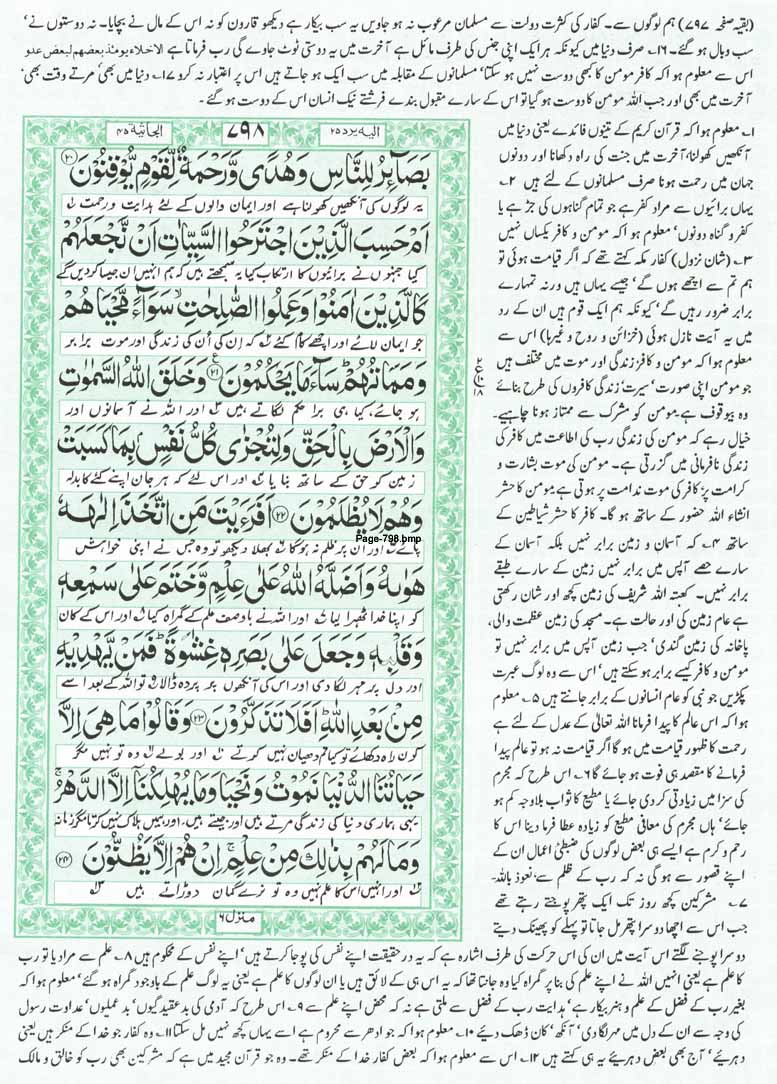 (بقیہ صفحہ ۷۹۷) ہم لوگوں سے۔ کفار کی کثرت دولت سے مسلمان مرعوب نہ ہو جاویں یہ سب بیکار ہے دیکھو قارون کو نہ اس کے مال نے بچایا۔ نہ دوستوں نے'
سب وبال ہو گئے۔ ۱۶۔ صرف دنیا میں کیونکہ ہر ایک اپنی جنس کی طرف مائل ہے آخرت میں یہ دوستی ٹوٹ جاوے گی رب فرماتا ہے الاخلاء یومئذ بعضھم لبعض عدو
اس سے معلوم ہوا کہ کافر مومن کا کبھی دوست نہیں ہو سکتا' مسلمانوں کے مقابلہ میں سب ایک ہو جاتے ہیں اس پر اعتبار نہ کرو ۱۷۔ دنیا میں بھی' مرتے وقت بھی'
آخرت میں بھی اور جب اللہ مومن کا دوست ہو گیا تو اس کے سارے مقبول بندے فرشتے نیک انسان اس کے دوست ہو گئے۔
الیه یرد ۲۵
۷۹۸
الجاثیة ۴۵
بَصَآئِرُ لِلنَّاسِ وَهُدًى وَّرَحْمَةٌ لِّقَوْمٍ يُّوْقِنُوْنَ ۲۰
یہ لوگوں کی آنکھیں کھولنا ہے اور ایمان والوں کے لئے ہدایت و رحمت
اَمْ حَسِبَ الَّذِيْنَ اجْتَرَحُوا السَّيِّاٰتِ اَنْ نَّجْعَلَهُمْ
کیا جنہوں نے برائیوں کا ارتکاب کیا یہ سمجھتے ہیں کہ ہم انہیں ان جیسا کر دیں گے
كَالَّذِيْنَ اٰمَنُوْا وَعَمِلُوا الصّٰلِحٰتِ ۙ سَوَآءً مَّحْيَاهُمْ
جو ایمان لائے اور اچھے کام کئے کہ ان کی اُن کی زندگی اور موت برابر
وَمَمَاتُهُمْ ؕ سَآءَ مَا يَحْكُمُوْنَ ۲۱ وَخَلَقَ اللّٰهُ السَّمٰوٰتِ
ہو جائے، کیا ہی برا حکم لگاتے ہیں اور اللہ نے آسمانوں اور
وَالْاَرْضَ بِالْحَقِّ وَلِتُجْزٰى كُلُّ نَفْسٍۭ بِمَا كَسَبَتْ
زمین کو حق کے ساتھ بنایا اور اس لئے کہ ہر جان اپنے کئے کا بدلہ
وَهُمْ لَا يُظْلَمُوْنَ ۲۲ اَفَرَءَيْتَ مَنِ اتَّخَذَ اِلٰهَهٗ
Page-798.bmp
پائے اور ان پر ظلم نہ ہو گا بھلا دیکھو تو وہ جس نے اپنی خواہش
هَوٰىهُ وَاَضَلَّهُ اللّٰهُ عَلٰى عِلْمٍ وَّخَتَمَ عَلٰى سَمْعِهٖ
کو اپنا خدا ٹھہرا لیا اور اللہ نے باوصف علم کے گمراہ کیا اور اس کے کان
وَقَلْبِهٖ وَجَعَلَ عَلٰى بَصَرِهٖ غِشٰوَةً ؕ فَمَنْ يَّهْدِيْهِ
اور دل پر مہر لگا دی اور اس کی آنکھوں پر پردہ ڈالا تو اللہ کے بعد اسے
مِنْۢ بَعْدِ اللّٰهِ ؕ اَفَلَا تَذَكَّرُوْنَ ۲۳ وَقَالُوْا مَا هِىَ اِلَّا
کون راہ دکھائے تو کیا تم دھیان نہیں کرتے اور بولے وہ تو نہیں مگر
حَيَاتُنَا الدُّنْيَا نَمُوْتُ وَنَحْيَا وَمَا يُهْلِكُنَآ اِلَّا الدَّهْرُ ۚ
یہی ہماری دنیا کی زندگی مرتے ہیں اور جیتے ہیں، اور ہمیں ہلاک نہیں کرتا مگر زمانہ
وَمَا لَهُمْ بِذٰلِكَ مِنْ عِلْمٍ ۚ اِنْ هُمْ اِلَّا يَظُنُّوْنَ ۲۴
اور انہیں اس کا علم نہیں وہ تو نرے گمان دوڑاتے ہیں
منزل ۶
۱۔ معلوم ہوا کہ قرآن کریم کے تینوں فائدے یعنی دنیا میں
آنکھیں کھولنا' آخرت میں جنت کی راہ دکھانا اور دونوں
جہان میں رحمت ہونا صرف مسلمانوں کے لئے ہیں ۲۔
یہاں برائیوں سے مراد کفر ہے جو تمام گناہوں کی جڑ ہے یا
کفر و گناہ دونوں' معلوم ہوا کہ مومن و کافر یکساں نہیں
۳۔ (شان نزول) کفار مکہ کہتے تھے کہ اگر قیامت ہوئی تو
ہم تم سے اچھے ہوں گے' جیسے یہاں ہیں ورنہ تمہارے
برابر ضرور رہیں گے' کیونکہ ہم ایک قوم ہیں ان کے رد
میں یہ آیت نازل ہوئی (خزائن و روح و غیرہا) اس سے
معلوم ہوا کہ مومن و کافر زندگی اور موت میں مختلف ہیں
جو مومن اپنی صورت' سیرت' زندگی کافروں کی طرح بنائے
وہ بیوقوف ہے مومن کو مشرک سے ممتاز ہونا چاہیے۔
خیال رہے کہ مومن کی زندگی رب کی اطاعت میں کافر کی
زندگی نافرمانی میں گزرتی ہے۔ مومن کی موت بشارت و
کرامت پر' کافر کی موت ندامت پر ہوتی ہے مومن کا حشر
انشاء اللہ حضور کے ساتھ ہو گا۔ کافر کا حشر شیاطین کے
ساتھ ۴۔ کہ آسمان و زمین برابر نہیں بلکہ آسمان کے
سارے حصے آپس میں برابر نہیں زمین کے سارے طبقے
برابر نہیں۔ کعبتہ اللہ شریف کی زمین کچھ اور شان رکھتی
ہے عام زمین کی اور حالت ہے۔ مسجد کی زمین عظمت والی'
پاخانہ کی زمین گندی' جب زمین آپس میں برابر نہیں تو
مومن و کافر کیسے برابر ہو سکتے ہیں' اس سے وہ لوگ عبرت
پکڑیں جو نبی کو عام انسانوں کے برابر جانتے ہیں ۵۔ معلوم
ہوا کہ اس عالم کا پیدا فرمانا اللہ تعالیٰ کے عدل کے لئے ہے
رحمت کا ظہور قیامت میں ہو گا اگر قیامت نہ ہو تو عالم پیدا
فرمانے کا مقصد ہی فوت ہو جائے گا ۶۔ اس طرح کہ مجرم
کی سزا میں زیادتی کر دی جائے یا مطیع کا ثواب بلاوجہ کم ہو
جائے' ہاں مجرم کی معافی مطیع کو زیادہ عطا فرما دینا اس کا
رحم و کرم ہے ایسے ہی بعض لوگوں کی ضبطی اعمال ان کے
اپنے قصور سے ہو گی نہ کہ رب کے ظلم سے' نعوذ باللہ
۷۔ مشرکین کچھ روز تک ایک پتھر پوجتے رہتے تھے
جب اس سے اچھا دوسرا پتھر مل جاتا تو پہلے کو پھینک دیتے
دوسرا پوجنے لگتے اس آیت میں ان کی اس حرکت کی طرف اشارہ ہے کہ یہ در حقیقت اپنے نفس کی پوجا کرتے ہیں' اپنے نفس کے محکوم ہیں ۸۔ علم سے مراد یا تو رب
کا علم ہے یعنی انہیں اللہ نے اپنے علم کی بنا پر گمراہ کیا وہ جانتا تھا کہ یہ اس ہی کے لائق ہیں یا ان لوگوں کا علم ہے یعنی یہ لوگ علم کے باوجود گمراہ ہو گئے' معلوم ہوا کہ
بغیر رب کے فضل کے علم و ہنر بیکار ہے' ہدایت رب کے فضل سے ملتی ہے نہ کہ محض اپنے علم سے ۹۔ اس طرح کہ آدمی کی بد عقیدگیوں' بد عملیوں' عداوت رسول
کی وجہ سے ان کے دل میں مہر لگا دی' آنکھ' کان ڈھک دیئے ۱۰۔ معلوم ہوا کہ جو ادھر سے محروم ہے اسے یہاں کچھ نہیں مل سکتا ۱۱۔ وہ کفار جو خدا کے منکر ہیں یعنی
دہریے' آج بھی بعض دہریئے یہ ہی کہتے ہیں ۱۲۔ اس سے معلوم ہوا کہ بعض کفار خدا کے منکر تھے۔ وہ جو قرآن مجید میں ہے کہ مشرکین بھی رب کو خالق و مالک